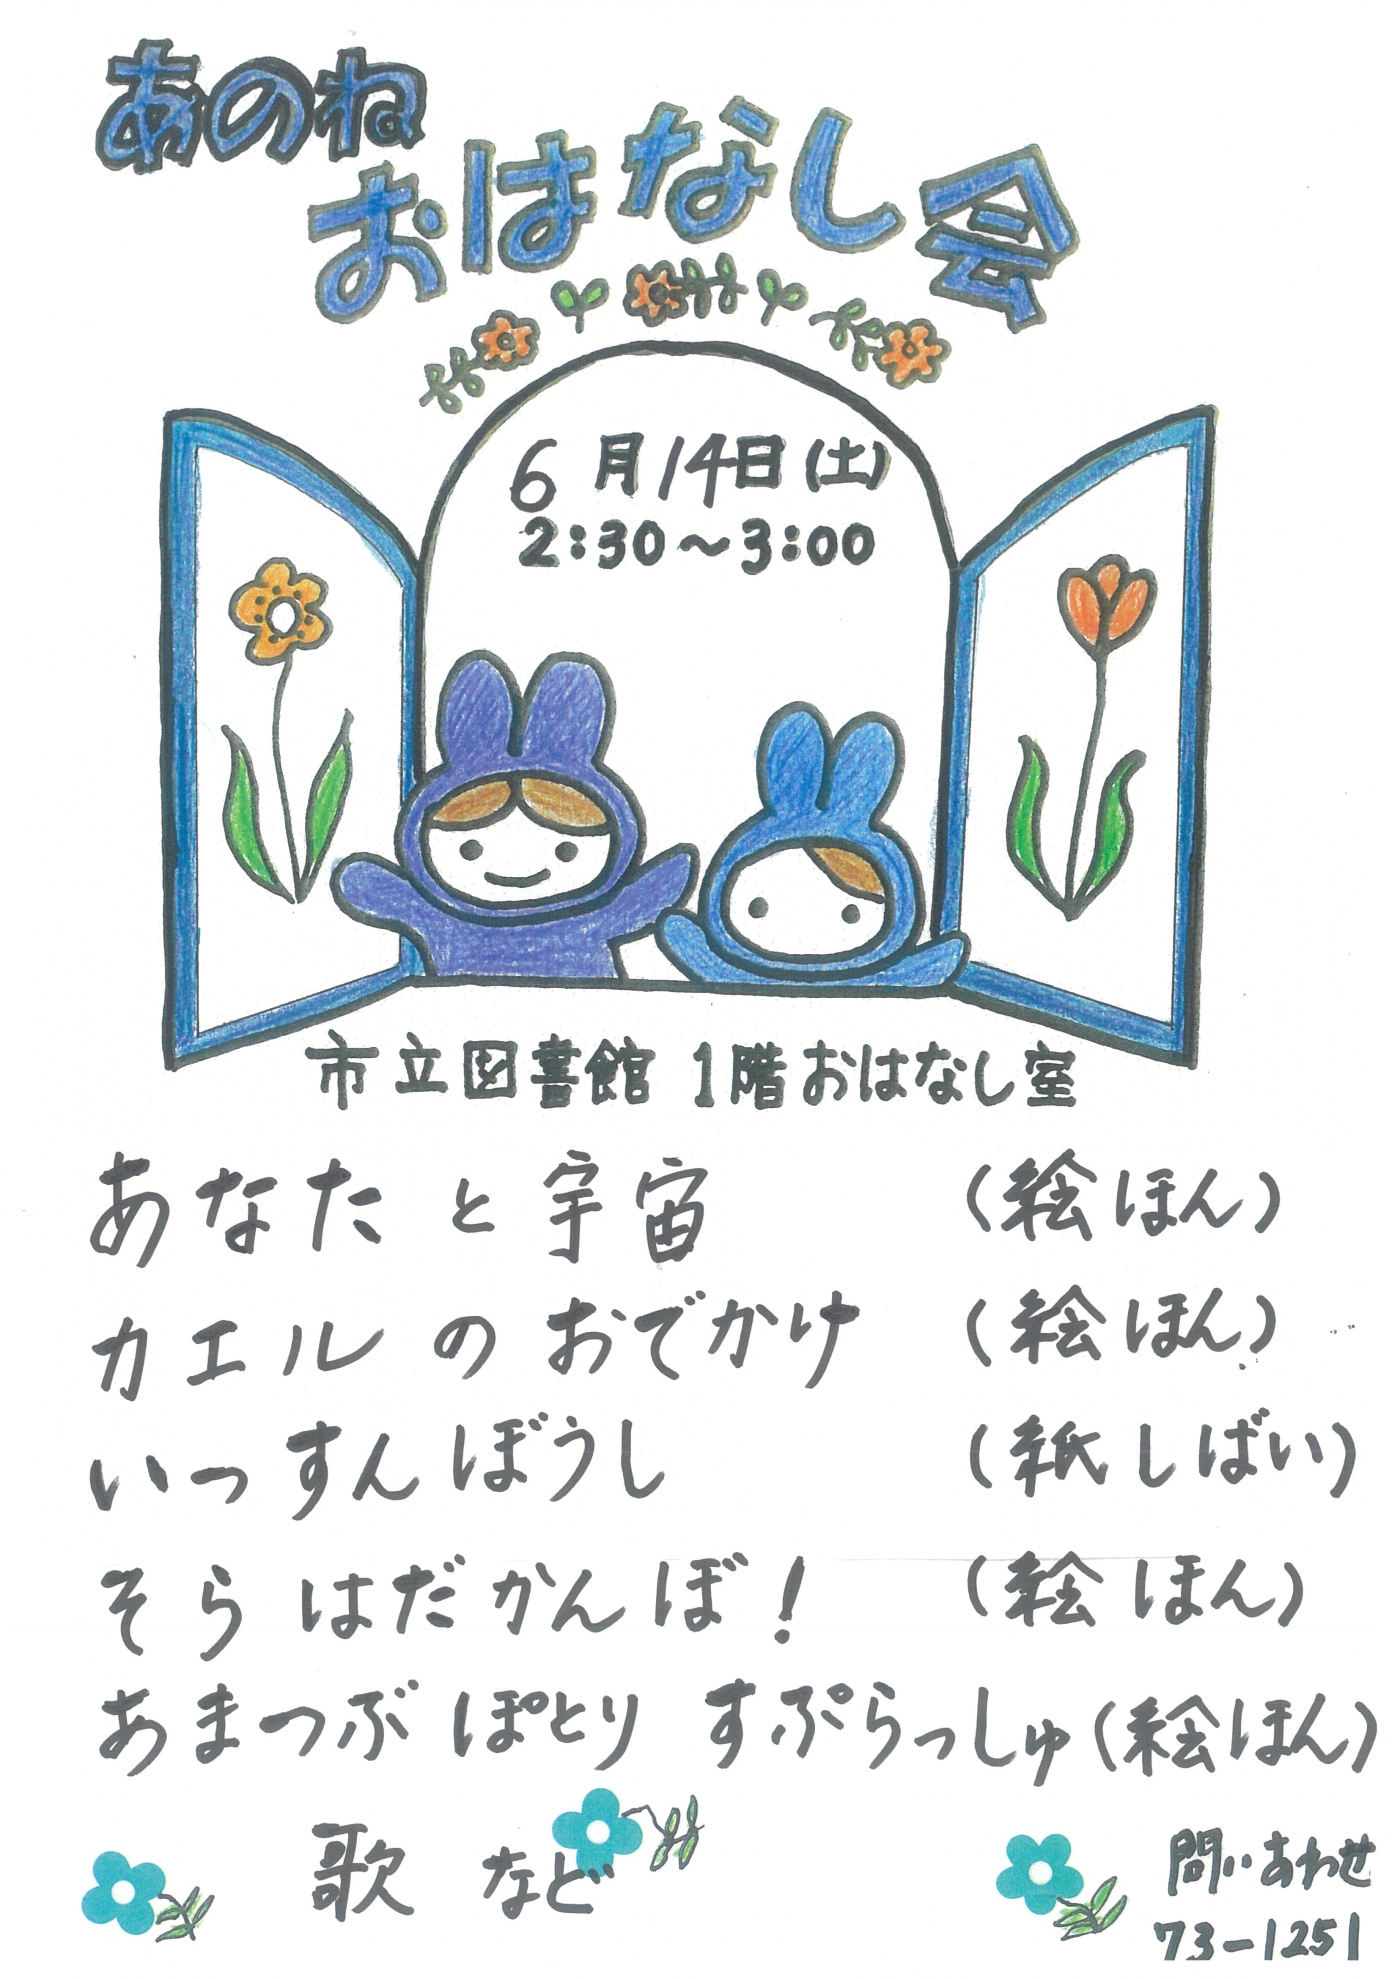 あのね
おはなし会
6月14日(土)
2:30～3:00
市立図書館 1階おはなし室
あなたと宇宙 (絵ほん)
カエルのおでかけ (絵ほん)
いっすんぼうし (紙しばい)
そらはだかんぼ! (絵ほん)
あまつぶ ぽとり すぷらっしゅ (絵ほん)
歌 など
問いあわせ
73-1251